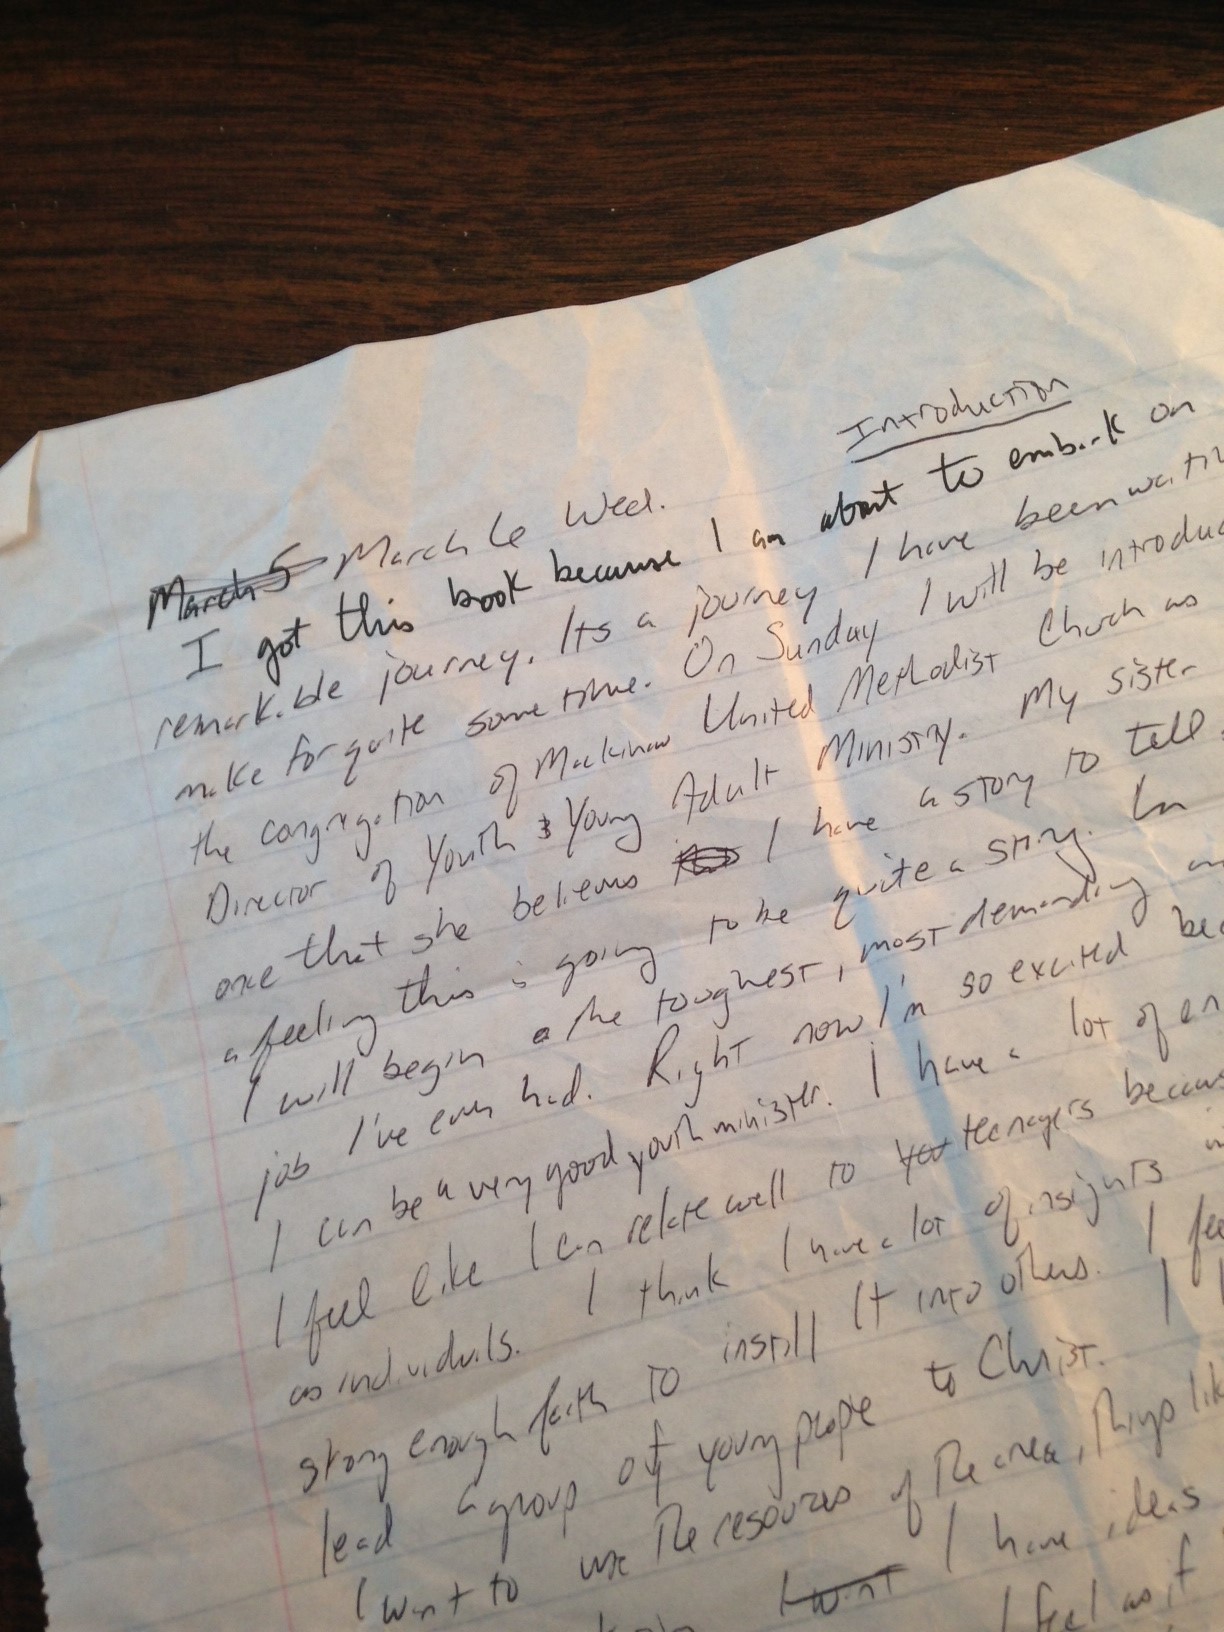 Introduction
March 5 March 6 Wed.
I got this book because I am about to embark on
remarkable journey. Its a journey I have been
make for quite some time. On Sunday I will be
the congregation of Mackinaw United Methodist Church as
Director of Youth & Young Adult Ministry. My sister
once that she believes I have a story to tell.
a feeling this is going to be quite a story. In
I will begin the toughest, most demanding
job I've ever had. Right now I'm so excited
I can be a very good youth minister. I have a lot of
I feel like I can relate well to teenagers
as individuals. I think I have a lot of insights
strong enough faith to instill it into others. I
lead a group of young people to Christ. I
I want to use the resources of the area, things
I want I have ideas
I feel as if